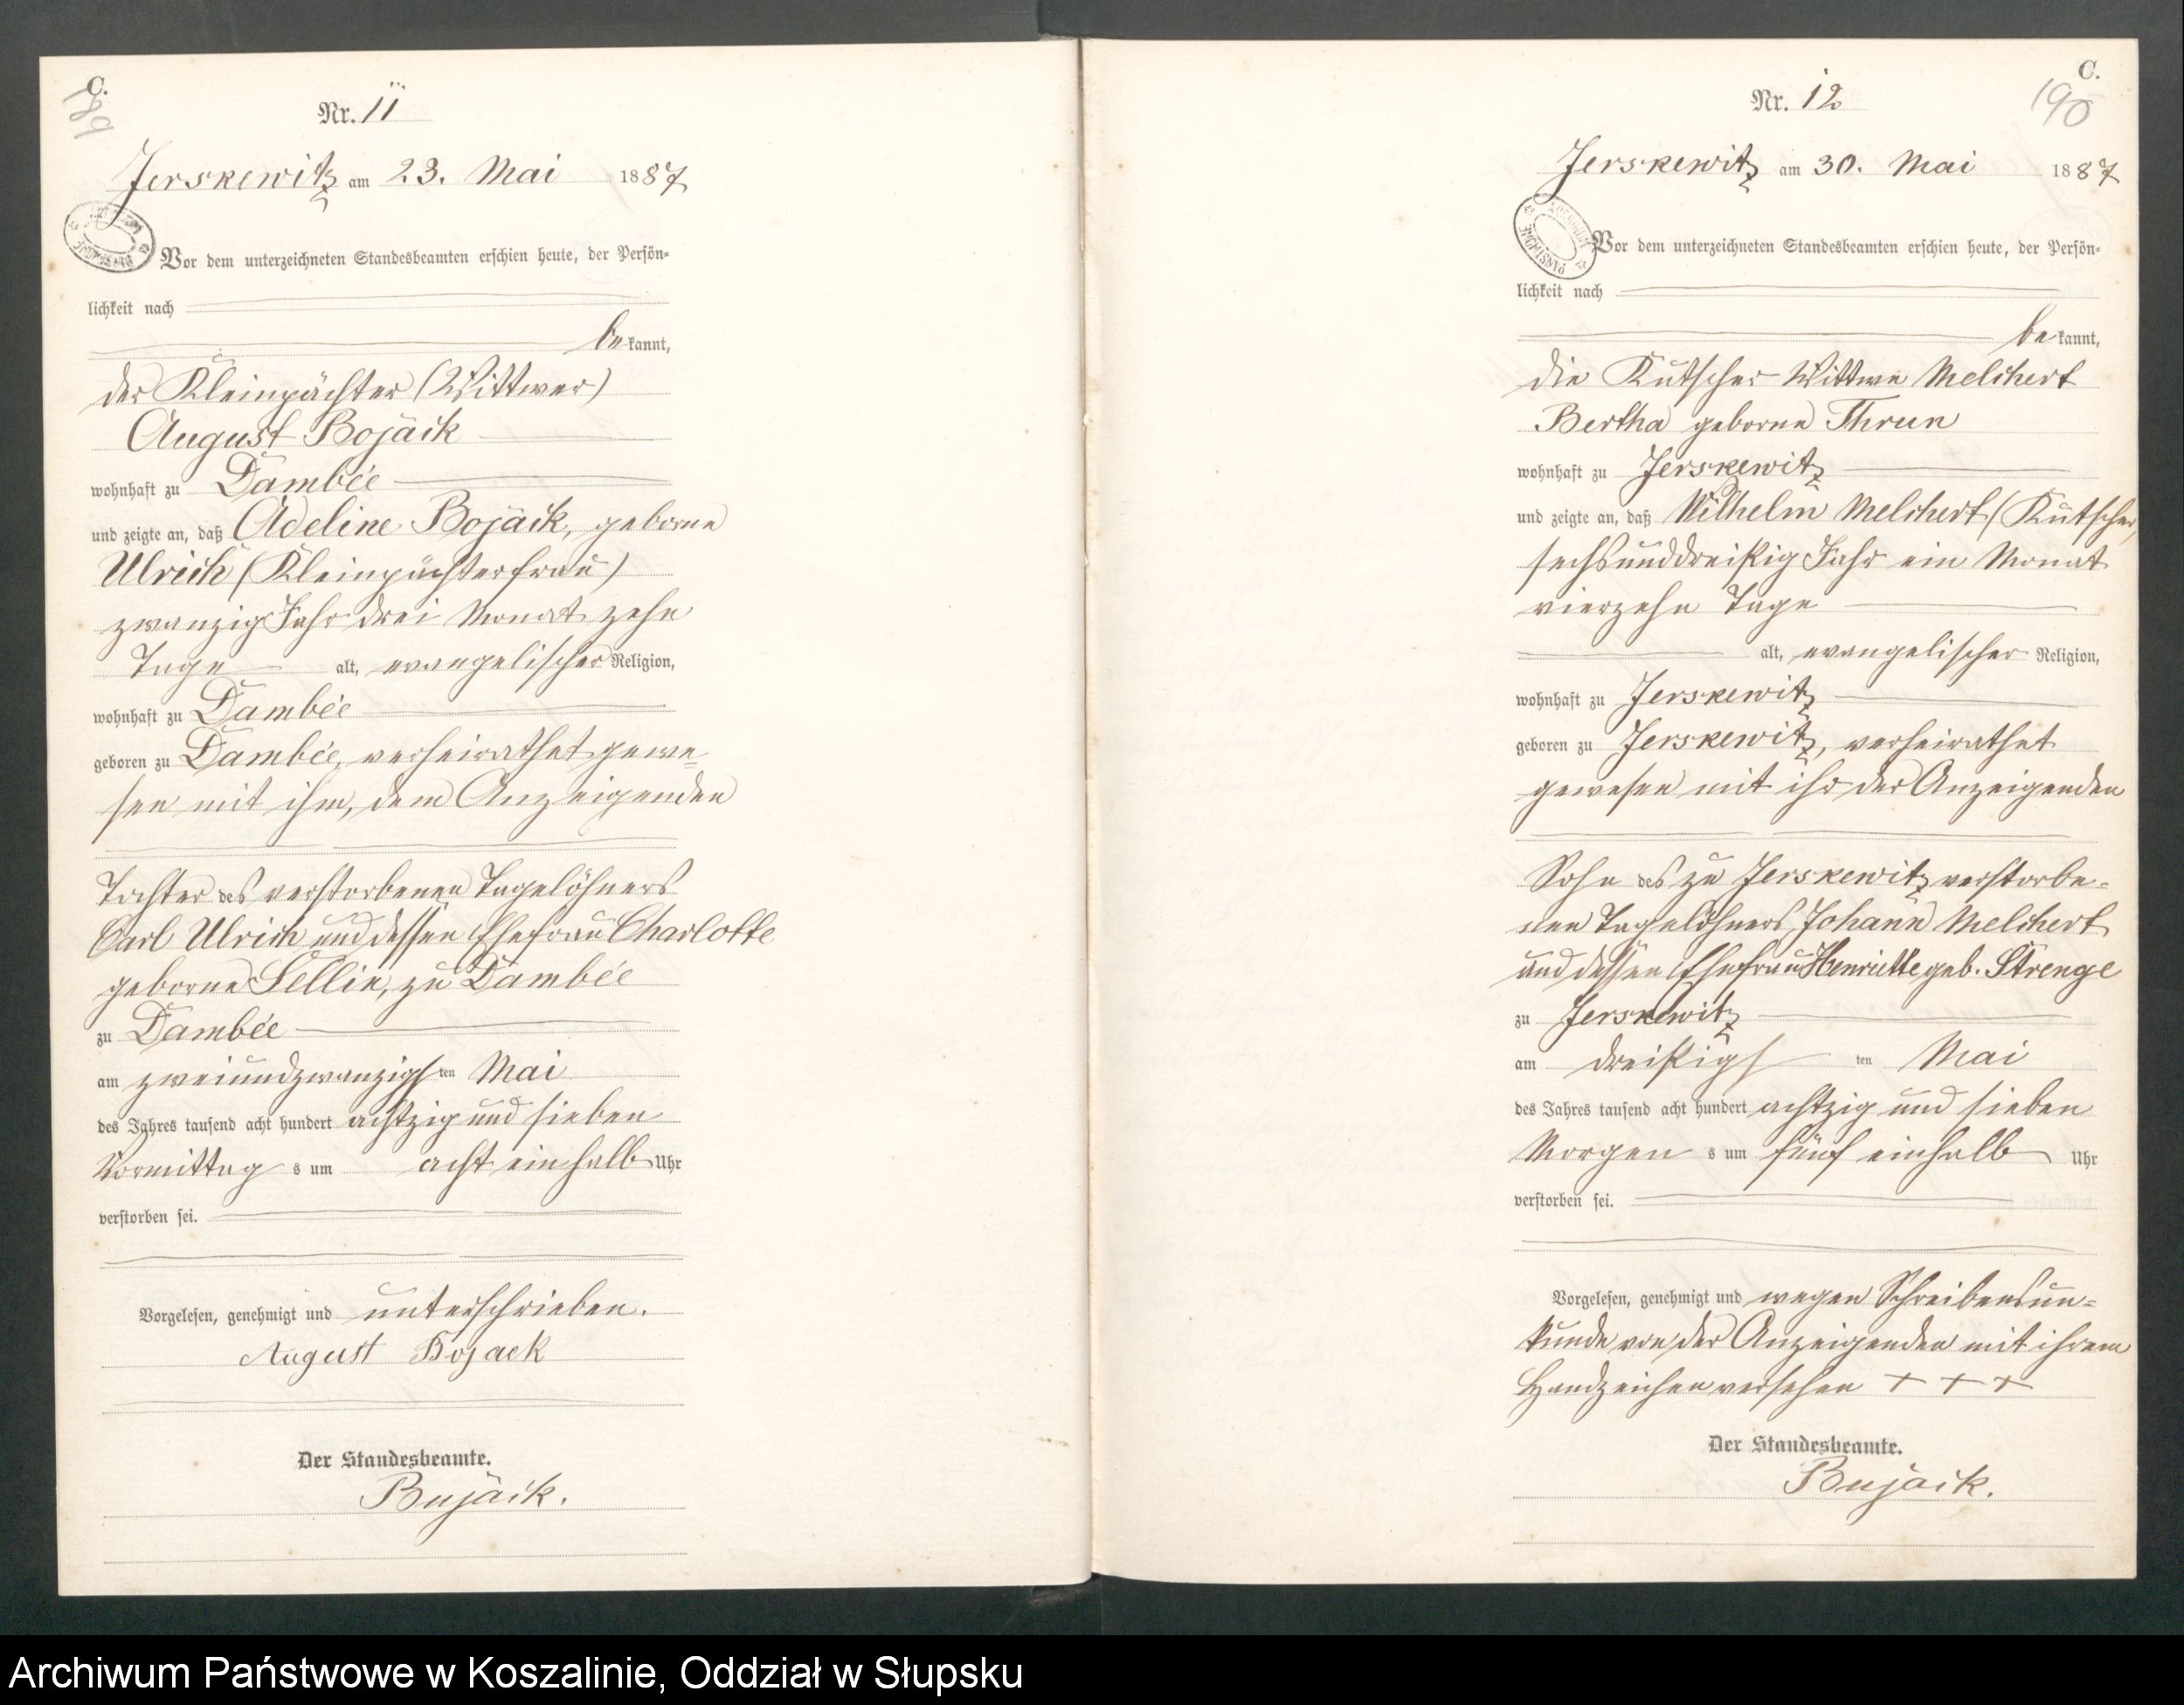 C.
189
Nr. 11
Jerskewitz am 23. Mai 1887
Vor dem unterzeichneten Standesbeamten erschien heute, der Persön-
lichkeit nach
bekannt,
der Kleinpächter (Wittwer)
August Bojack
wohnhaft zu Dambée
und zeigte an, daß Adeline Bojack, geborne
Ulrich (Kleinpächterfrau)
zwanzig Jahr drei Monat zehn
Tage alt, evangelischer Religion,
wohnhaft zu Dambée
geboren zu Dambée, verheirathet gewe-
sen mit ihm, dem Anzeigenden
Tochter des verstorbenen Tagelöhners
Carl Ulrich und dessen Ehefrau Charlotte
geborne Sellin, zu Dambée
zu Dambée
am zweiundzwanzigsten Mai
des Jahres tausend acht hundert achtzig und sieben
Vormittags um acht einhalb Uhr
verstorben sei.
Vorgelesen, genehmigt und unterschrieben.
August Bojack
Der Standesbeamte.
Bujack.
C.
190
Nr. 12
Jerskewitz am 30. Mai 1887
Vor dem unterzeichneten Standesbeamten erschien heute, der Persön-
lichkeit nach
bekannt,
die Kutscher-Wittwe Melchert
Bertha geborne Thrun
wohnhaft zu Jerskewitz
und zeigte an, daß Wilhelm Melchert (Kutscher)
sechsunddreißig Jahr ein Monat
vierzehn Tage
alt, evangelischer Religion,
wohnhaft zu Jerskewitz
geboren zu Jerskewitz, verheirathet
gewesen mit ihr der Anzeigenden
Sohn des zu Jerskewitz verstorbe-
nen Tagelöhners Johann Melchert
und dessen Ehefrau Henriette geb. Strenge
zu Jerskewitz
am dreißigsten Mai
des Jahres tausend acht hundert achtzig und sieben
Morgens um fünf einhalb Uhr
verstorben sei.
Vorgelesen, genehmigt und wegen Schreibensun-
kunde von der Anzeigenden mit ihrem
Handzeichen versehen + + +
Der Standesbeamte.
Bujack.
Archiwum Państwowe w Koszalinie, Oddział w Słupsku